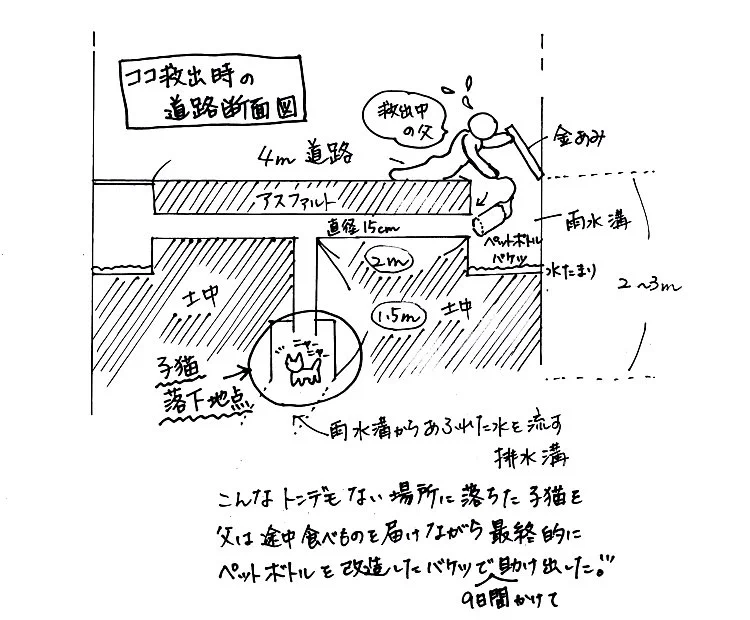 ココ救出時の
道路断面図
救出中
の父
金あみ
4m 道路
アスファルト
雨水溝
直径15cm
ペットボトル
バケツ
2m
水たまり
土中
2~3m
1.5m
土中
ニャー
ニャー
子猫
落下地点
雨水溝からあふれた水を流す
排水溝
こんなトンデモない場所に落ちた子猫を
父は途中食べものを届けながら最終的に
ペットボトルを改造したバケツで助け出した。
9日間かけて